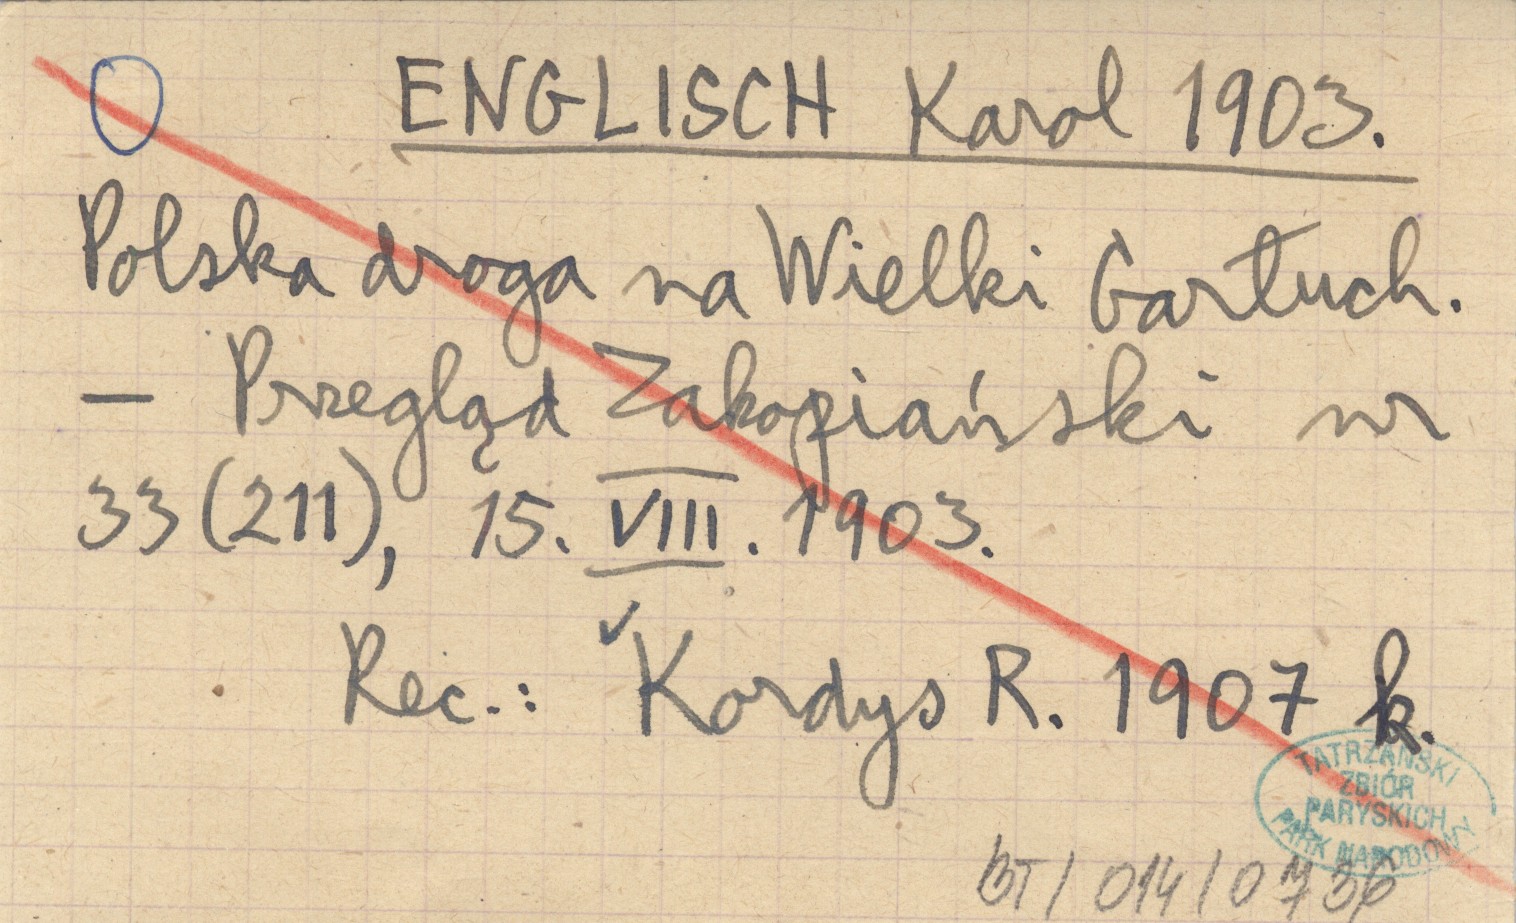 ENGLISCH Karol 1903.
Polska droga na Wielki Gartuch.
— Przegląd Zakopiański nr
33 (211), 15. VIII. 1903.
Rec.: ✓Kordys R. 1907 k.
TATRZAŃSKI
ZBIÓR
PARYSKICH
PARK NARODOWY
BT / 014 / 0736